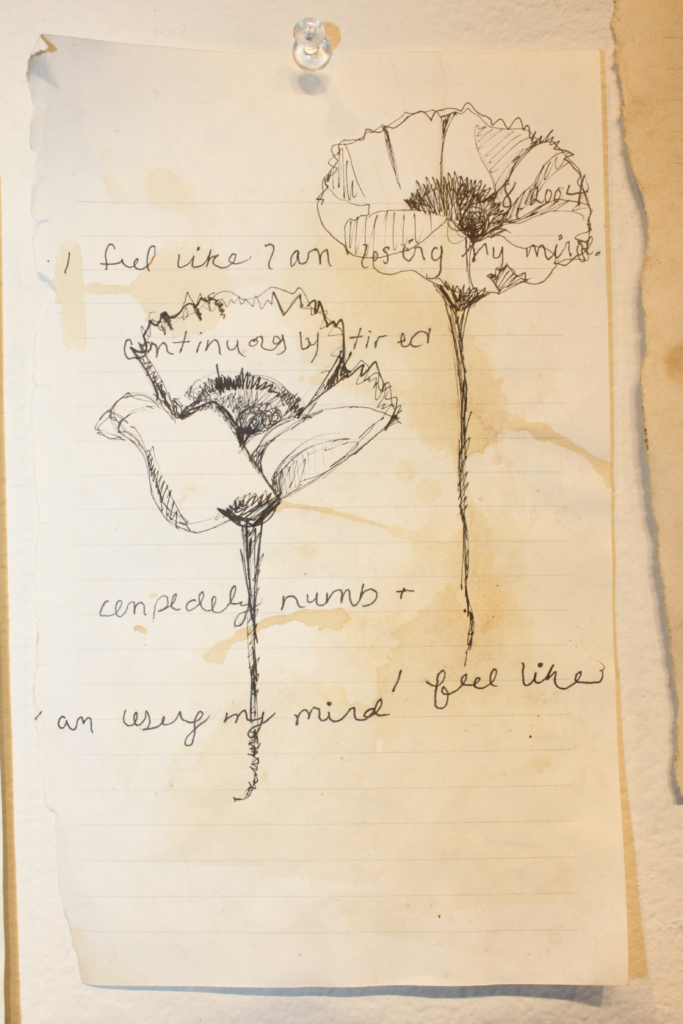 I feel like I am losing my mind.
continuously tired
completely numb +
I feel like
I am losing my mind